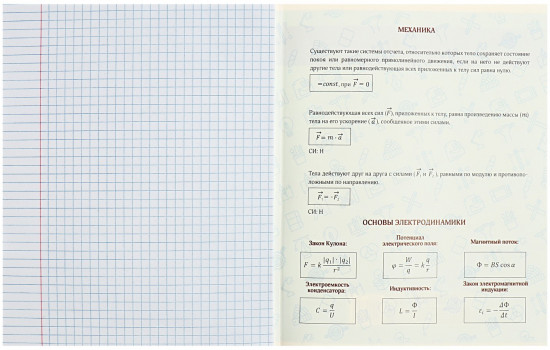 МЕХАНИКА
Существуют такие системы отсчета, относительно которых тело сохраняет состояние
покоя или равномерного прямолинейного движения, если на него не действуют
другие тела или равнодействующая всех приложенных к телу сил равна нулю.
=const, при F⃗ = 0
Равнодействующая всех сил (F⃗), приложенных к телу, равна произведению массы (m)
тела на его ускорение (a⃗), сообщенное этими силами.
F⃗ = m · a⃗
СИ: Н
Тела действуют друг на друга с силами (F⃗ и F⃗), равными по модулю и противопо-
ложными по направлению.
F⃗ = -F⃗
СИ: Н
ОСНОВЫ ЭЛЕКТРОДИНАМИКИ
Закон Кулона:
F = k |q₁| · |q₂| / r²
Потенциал
электрического поля:
φ = W/q = k q/r
Магнитный поток:
Φ = BS cos α
Электроемкость
конденсатора:
C = q/U
Индуктивность:
L = Φ/I
Закон электромагнитной
индукции:
εᵢ = − ΔΦ/Δt